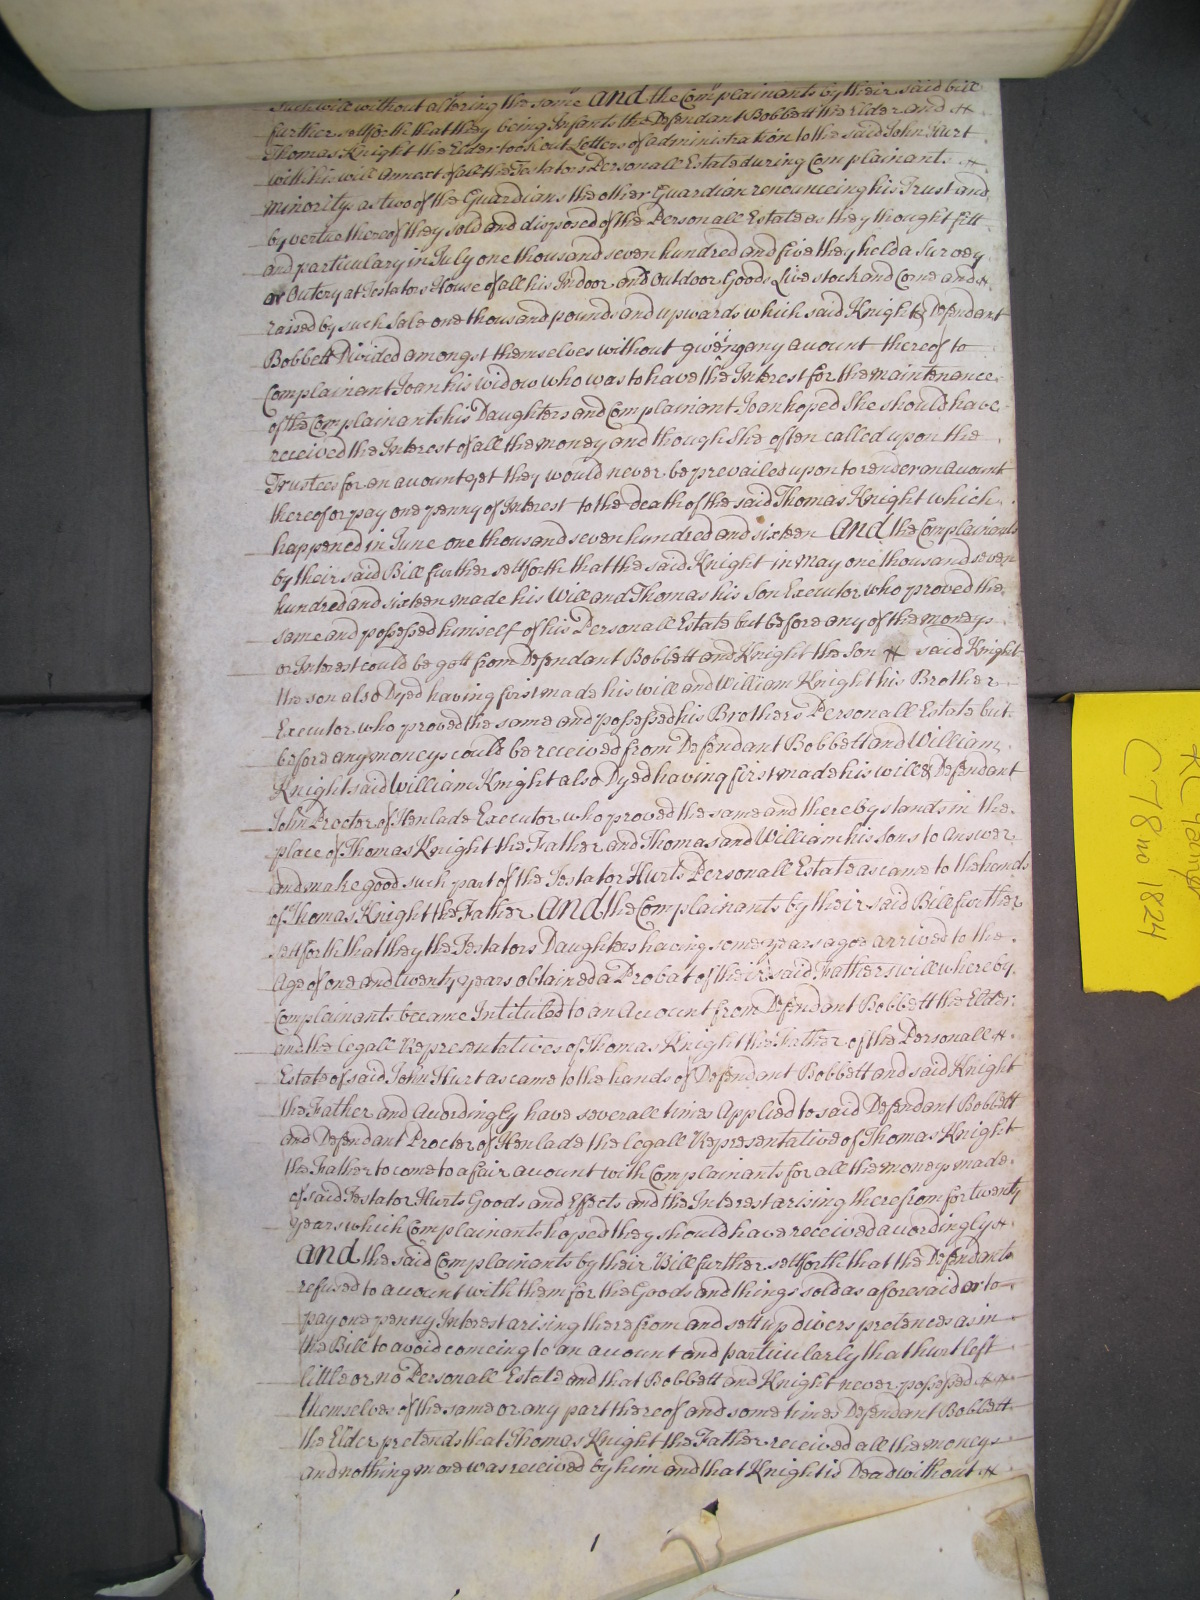 such will without altering the same And the Complainants by their said bill
further settforth that they being Infants the Defendant Bobbett the Elder and
Thomas Knight the Elder took out Letters of administration to the said John Hurt
with his will Annext of all the Testators Personall Estate during Complainants
minority as two of the Guardians the other Guardian renounceing his Trust and
by vertue thereof they sold and disposed of the Personall Estate as they thought fitt
and particulary in July one thousand seven hundred and five they held a Survey
or Outcry at Testators House of all his Indoor and Outdoor Goods Live stock and Corne and
raised by such Sale one thousand pounds and upwards which said Knight & Defendant
Bobbett Divided amongst themselves without giveing any account thereof to
Complainant Joan his widow who was to have the Interest for the maintenance
of the Complainants his Daughters and Complainant Joan hoped She should have
received the Interest of all the money and though She often called upon the
Trustees for an account yet they would never be prevailed upon to render an Account
thereof or pay one penny of Interest to the death of the said Thomas Knight which
happened in June one thousand seven hundred and sixteen And the Complainants
by their said Bill further settforth that the said Knight in may one thousand seven
hundred and sixteen made his Will and Thomas his Son Executor who proved the
same and possessed himself of his Personall Estate but before any of the moneys
or Interest could be gott from Defendant Bobbett and Knight the Son said Knight
the son also Dyed having first made his will and William Knight his Brother
Executor who proved the same and possessed his Brother's Personall Estate but
before any moneys could be received from Defendant Bobbett and William
Knight said William Knight also Dyed having first made his will & Defendant
John Procter of Henlade Executor who proved the same and thereby stands in the
place of Thomas Knight the Father and Thomas and William his Sons to Answer
and make good such part of the Testator Hurts Personall Estate as came to the hands
of Thomas Knight the Father And the Complainants by their said Bill further
settforth that they the Testators Daughters having some years agoe arrived to the
Age of one and twenty years obtained a Probat of their said Fathers will whereby
Complainants became Intituled to an Account from Defendant Bobbett the Elder
and the legall Representatives of Thomas Knight the Father of the Personall
Estate of said John Hurt as came to the hands of Defendant Bobbett and said Knight
the Father and Accordingly have severall times Applied to said Defendant Bobbett
and Defendant Procter of Henlade the legall Representative of Thomas Knight
the Father to come to a fair account with Complainants for all the moneys made
of said Testator Hurts Goods and Effects and the Interest arising therefrom for twenty
years which Complainants hoped they should have received accordingly
And the said Complainants by their Bill further settforth that the Defendants
refused to account with them for the Goods and things sold as aforesaid or to
pay one penny Interest arising therefrom and sett up divers pretences as in
the Bill to avoid comeing to an account and particularly that hurt left
little or no Personall Estate and that Bobbett and Knight never possessed
themselves of the same or any part thereof and some times Defendant Bobbett
the Elder pretends that Thomas Knight the Father received all the moneys
and nothing more was received by him and that Knight is Dead without
C78 no 1824